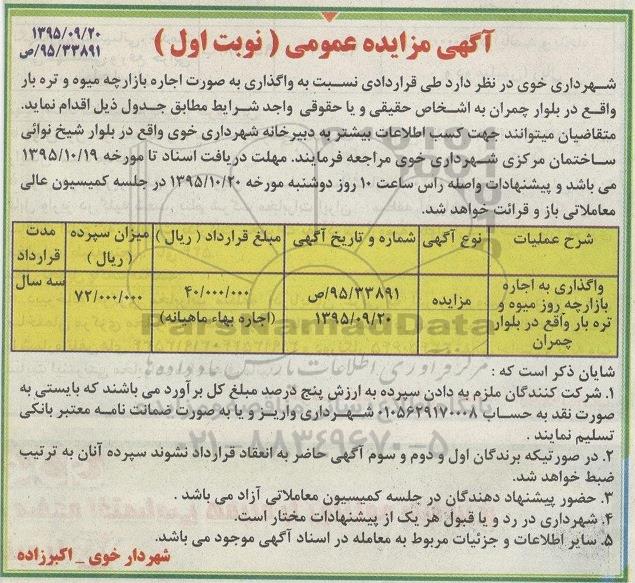 آگهی مزایده عمومی ( نوبت اول )
۱۳۹۵/۰۹/۲۰
۹۵/۳۳۸۹۱/ص
شـهرداری خوی در نظر دارد طی قراردادی نسبت به واگذاری به صورت اجاره بازارچه میوه و تره بار
واقـع در بلوار چمران به اشخاص حقیقی و یا حقوقی واجد شـرایط مطابق جدول ذیل اقدام نماید.
متقاضیان میتوانند جهت کسب اطلاعات بیشتر به دبیرخانه شهرداری خوی واقع در بلوار شیخ نوائی
ساختمان مرکزی شـهرداری خوی مراجعه فرمایند. مهلت دریافت اسناد تا مورخه ۱۳۹۵/۱۰/۱۹
می باشد و پیشنهادات واصله راس ساعت ۱۰ روز دوشنبه مورخه ۱۳۹۵/۱۰/۲۰ در جلسه کمیسیون عالی
معاملاتی باز و قرائت خواهد شد.
شرح عملیات | نوع آگهی | شماره و تاریخ آگهی | مبلغ قرارداد ( ریال ) | میزان سپرده ( ریال ) | مدت قرارداد
واگذاری به اجاره بازارچه روز میوه و تره بار واقع در بلوار چمران | مزایده | ۹۵/۳۳۸۹۱/ص ۱۳۹۵/۰۹/۲۰ | ۴۰/۰۰۰/۰۰۰ (اجاره بهاء ماهیانه) | ۷۲/۰۰۰/۰۰۰ | سه سال
ParsNamadData
مرکز فرآوری اطلاعات پارس نماد داده‌ها
۰۲۱-۸۸۳۴۹۶۷۰-۵
شایان ذکر است که :
۱. شرکت کنندگان ملزم به دادن سپرده به ارزش پنج درصد مبلغ کل برآورد می باشند که بایستی به
صورت نقد به حساب ۰۱۰۵۶۲۹۱۷۰۰۰۸ شـهرداری واریـز و یا به صورت ضمانت نامـه معتبر بانکی
تسلیم نمایند .
۲. در صورتیکه برندگان اول و دوم و سوم آگهی حاضر به انعقاد قرارداد نشوند سپرده آنان به ترتیب
ضبط خواهد شد.
۳. حضور پیشنهاد دهندگان در جلسه کمیسیون معاملاتی آزاد می باشد .
۴. شهرداری در رد و یا قبول هر یک از پیشنهادات مختار است.
۵. سایر اطلاعات و جزئیات مربوط به معامله در اسناد آگهی موجود می باشد.
شهردار خوی _ اکبرزاده